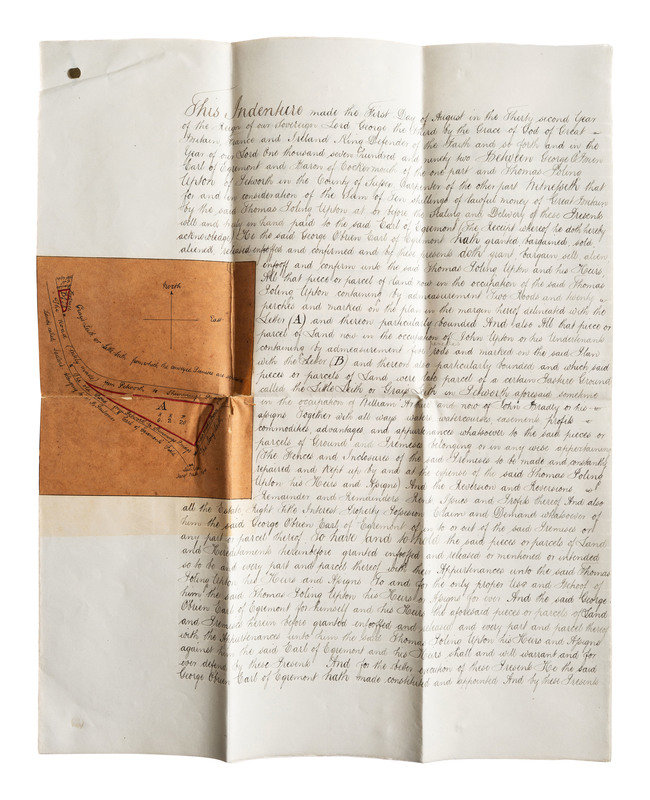 This Indenture made the First Day of August in the Thirty second Year
of the Reign of our Sovereign Lord George the Third by the Grace of God of Great
Britain, France and Ireland King Defender of the Faith and so forth and in the
Year of our Lord One thousand seven hundred and ninety two Between George O'Brien
Earl of Egremont and Baron of Cockermouth of the one part and Thomas Soling
Upton of Petworth in the County of Sussex Carpenter of the other part Witnesseth that
for and in consideration of the Sum of Ten Shillings of lawful money of Great Britain
by the said Thomas Soling Upton at or before the Sealing and Delivery of these Presents
well and truly in hand paid to the said Earl of Egremont (The Receipt whereof he doth hereby
acknowledge) He the said George Obrien Earl of Egremont hath granted bargained sold
aliened released enfeoffed and confirmed and by these presents doth grant bargain sell alien
enfeoff and confirm unto the said Thomas Soling Upton and his Heirs
All that piece or parcel of Land now in the occupation of the said Thomas
Soling Upton containing by admeasurement Two Roods and twenty
perches and marked on the plan in the margin hereof delineated with the
Letter (A) and thereon particularly bounded And also All that piece or
parcel of Land now in the occupation of John Upton or his Undertenants
containing by admeasurement rods and marked on the said Plan
with the Letter (B) and thereon also particularly bounded and which said
pieces or parcels of Land were late parcel of a certain Pasture Ground
called the Little Leith or Grays in Petworth aforesaid sometime
in the occupation of William and now of John Bradly or his
assigns Together with all ways waters watercourses easements profits
commodities advantages and appurtenances whatsoever to the said pieces or
parcels of Ground and Premises belonging or in any wise appertaining
(The Fences and Inclosures of the said Premises to be made and constantly
repaired and kept up by and at the expense of the said Thomas Soling
Upton his Heirs and Assigns) And the Reversion and Reversions
Remainder and Remainders Rents Issues and Profits thereof And also
all the Estate Right Title Interest Property Possession Claim and Demand whatsoever of
him the said George Obrien Earl of Egremont of in to or out of the said Premises or
any part or parcel thereof To have and to hold the said pieces or parcels of Land
and Hereditaments hereinbefore granted enfeoffed and released or mentioned or intended
so to be and every part and parcel thereof with their Appurtenances unto the said Thomas
Soling Upton his Heirs and Assigns To and for the only proper Use and Behoof of
him the said Thomas Soling Upton his Heirs and Assigns for ever And the said George
Obrien Earl of Egremont for himself and his Heirs the aforesaid pieces or parcels of Land
and Premises herein before granted enfeoffed and released and every part and parcel thereof
with the Appurtenances unto him the said Thomas Soling Upton his Heirs and Assigns
against him the said Earl of Egremont and his Heirs shall and will warrant and for
ever defend by these Presents And for the better execution of these Presents He the said
George Obrien Earl of Egremont hath made constituted and appointed And by these Presents
North
East
from which the conveyed Premises are
from Petworth to
A